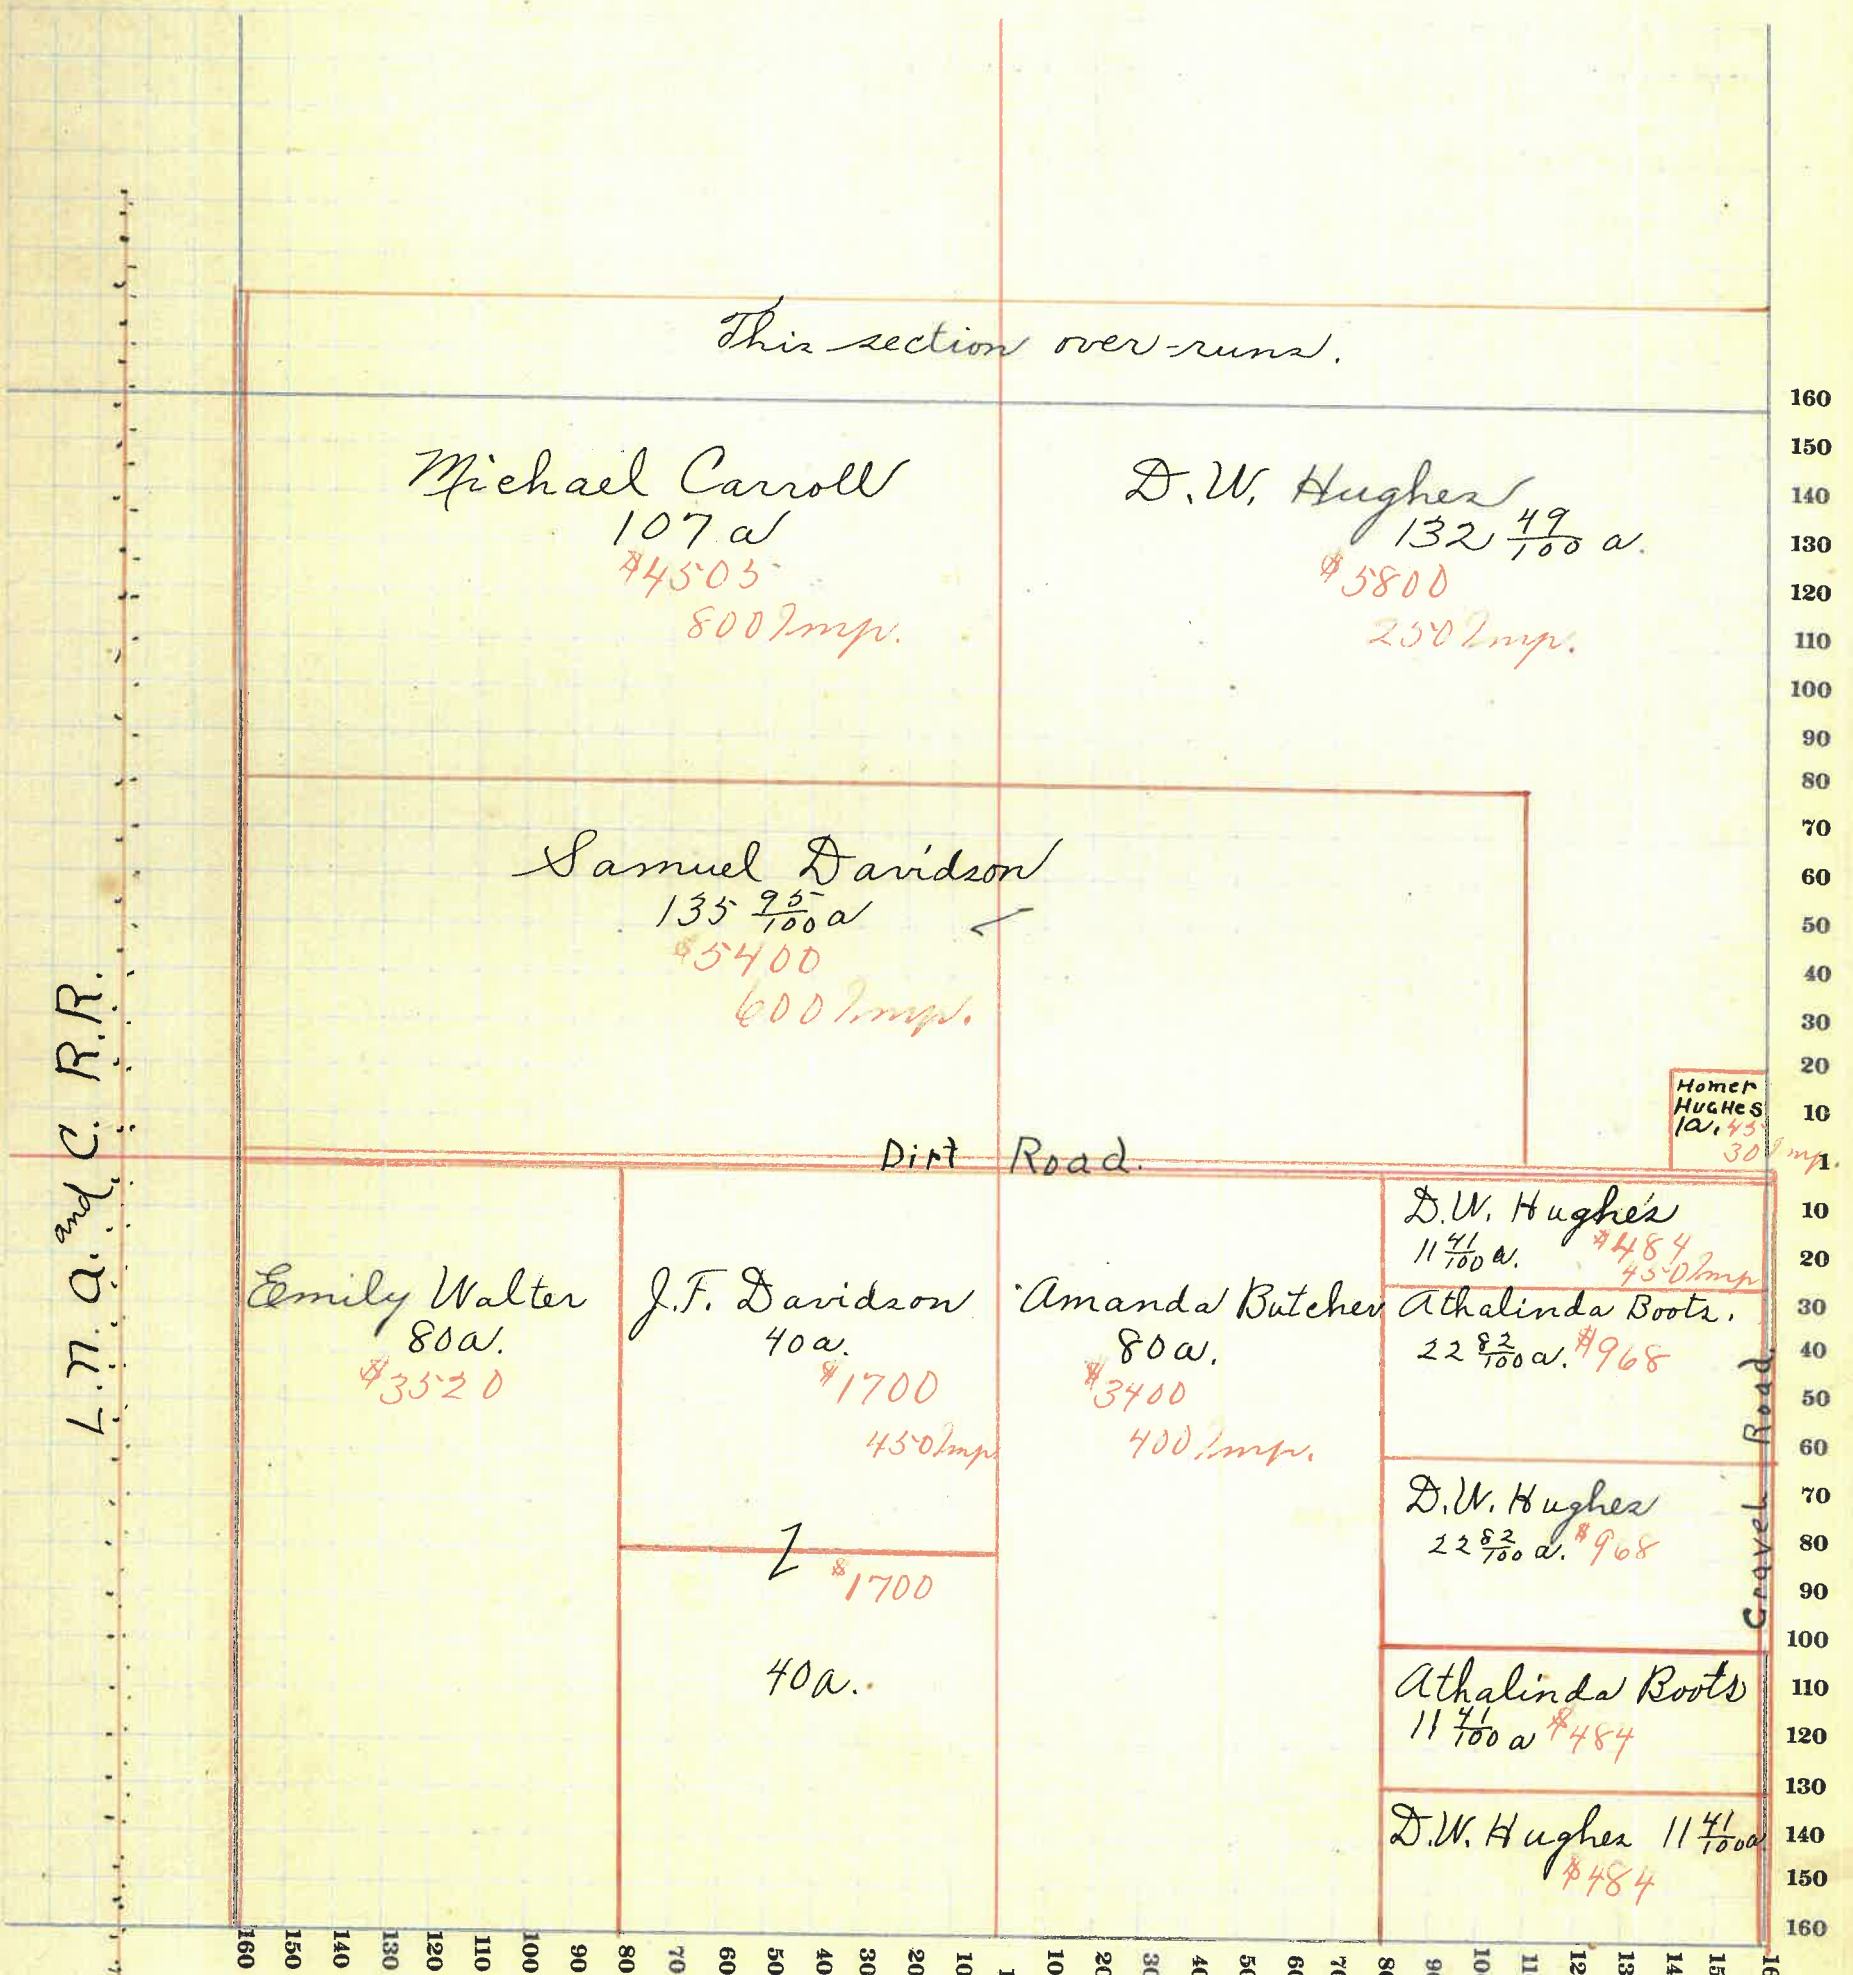 This section over-runs.
Michael Carroll
107 a
$4505
800 Imp.
D.W. Hughes
132 49/100 a.
$5800
250 Imp.
Samuel Davidson
135 95/100 a
$5400
600 Imp.
Homer
Hughes
1a. 45
30 Imp.
Dirt Road.
L.N. A. and C. R.R.
Emily Walter
80 a.
$3520
J.F. Davidson
40 a.
$1700
450 Imp
$1700
40 a.
Amanda Butcher
80 a.
$3400
400 Imp.
D.W. Hughes
11 41/100 a. $484
450 Imp
Athalinda Boots.
22 82/100 a. $968
D.W. Hughes
22 82/100 a. $968
Athalinda Boots
11 41/100 a $484
D.W. Hughes 11 41/100 a
$484
Gravel Road.
160
150
140
130
120
110
100
90
80
70
60
50
40
30
20
10
1
10
20
30
40
50
60
70
80
90
100
110
120
130
140
150
160
160 150 140 130 120 110 100 90 80 70 60 50 40 30 20 10 1 10 20 30 40 50 60 70 80 90 10 11 12 13 14 15 16